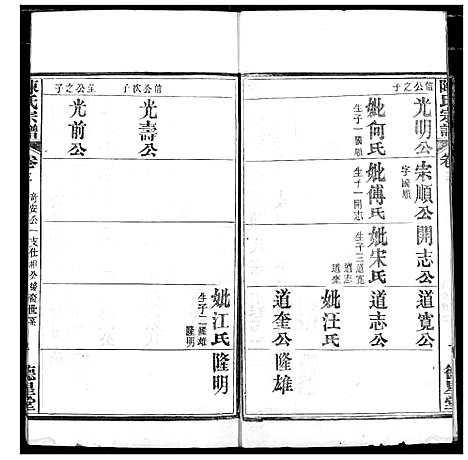 陳氏宗譜
卷三
德星堂
信公之子
光明公
妣何氏
生子一國順
宗順公
字國順
妣傅氏
生子一開志
開志公
妣宋氏
生子三道寬
道志
道奎
道寬公
道志公
妣汪氏
道奎公
隆雄
信公次子
光壽公
呈公之子
光前公
妣江氏
生子二隆雄
隆明
隆明
陳氏宗譜
卷三
德星堂